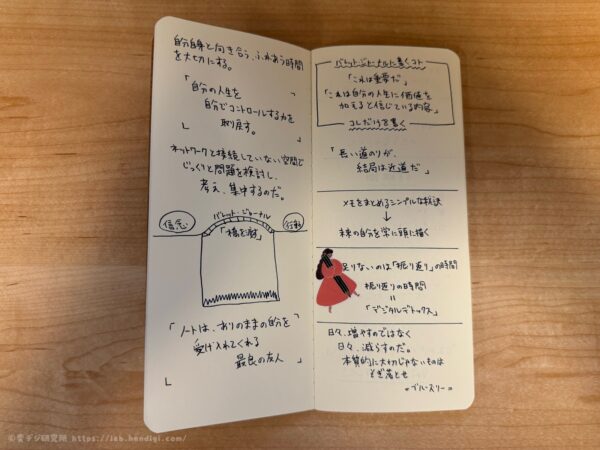 自分自身と向き合う、ふれあう時間
を大切にする。
「自分の人生を
自分でコントロールする力を
取り戻す。」
ネットワークと接続していない空間で
じっくりと問題を検討し、
考え、集中するのだ。
バレット・ジャーナル
信念
「橋を架」
行動
「ノートは、ありのままの自分を
受け入れてくれる
最良の友人」
バレットジャーナルに書くコト
「これは重要だ」
「これは自分の人生に価値を
加えると信じている内容」
コレだけを書く
「長い道のりが、
結局は近道だ」
メモをまとめるシンプルな秘訣
↓
未来の自分を常に頭に描く
足りないのは「振り返り」の時間
振り返りの時間
=
「デジタルデトックス」
日々、増やすのではなく
日々、減らすのだ。
本質的に大切じゃないものは
そぎ落とせ
=ブルース・リー=
https://lab.hendigi.com/